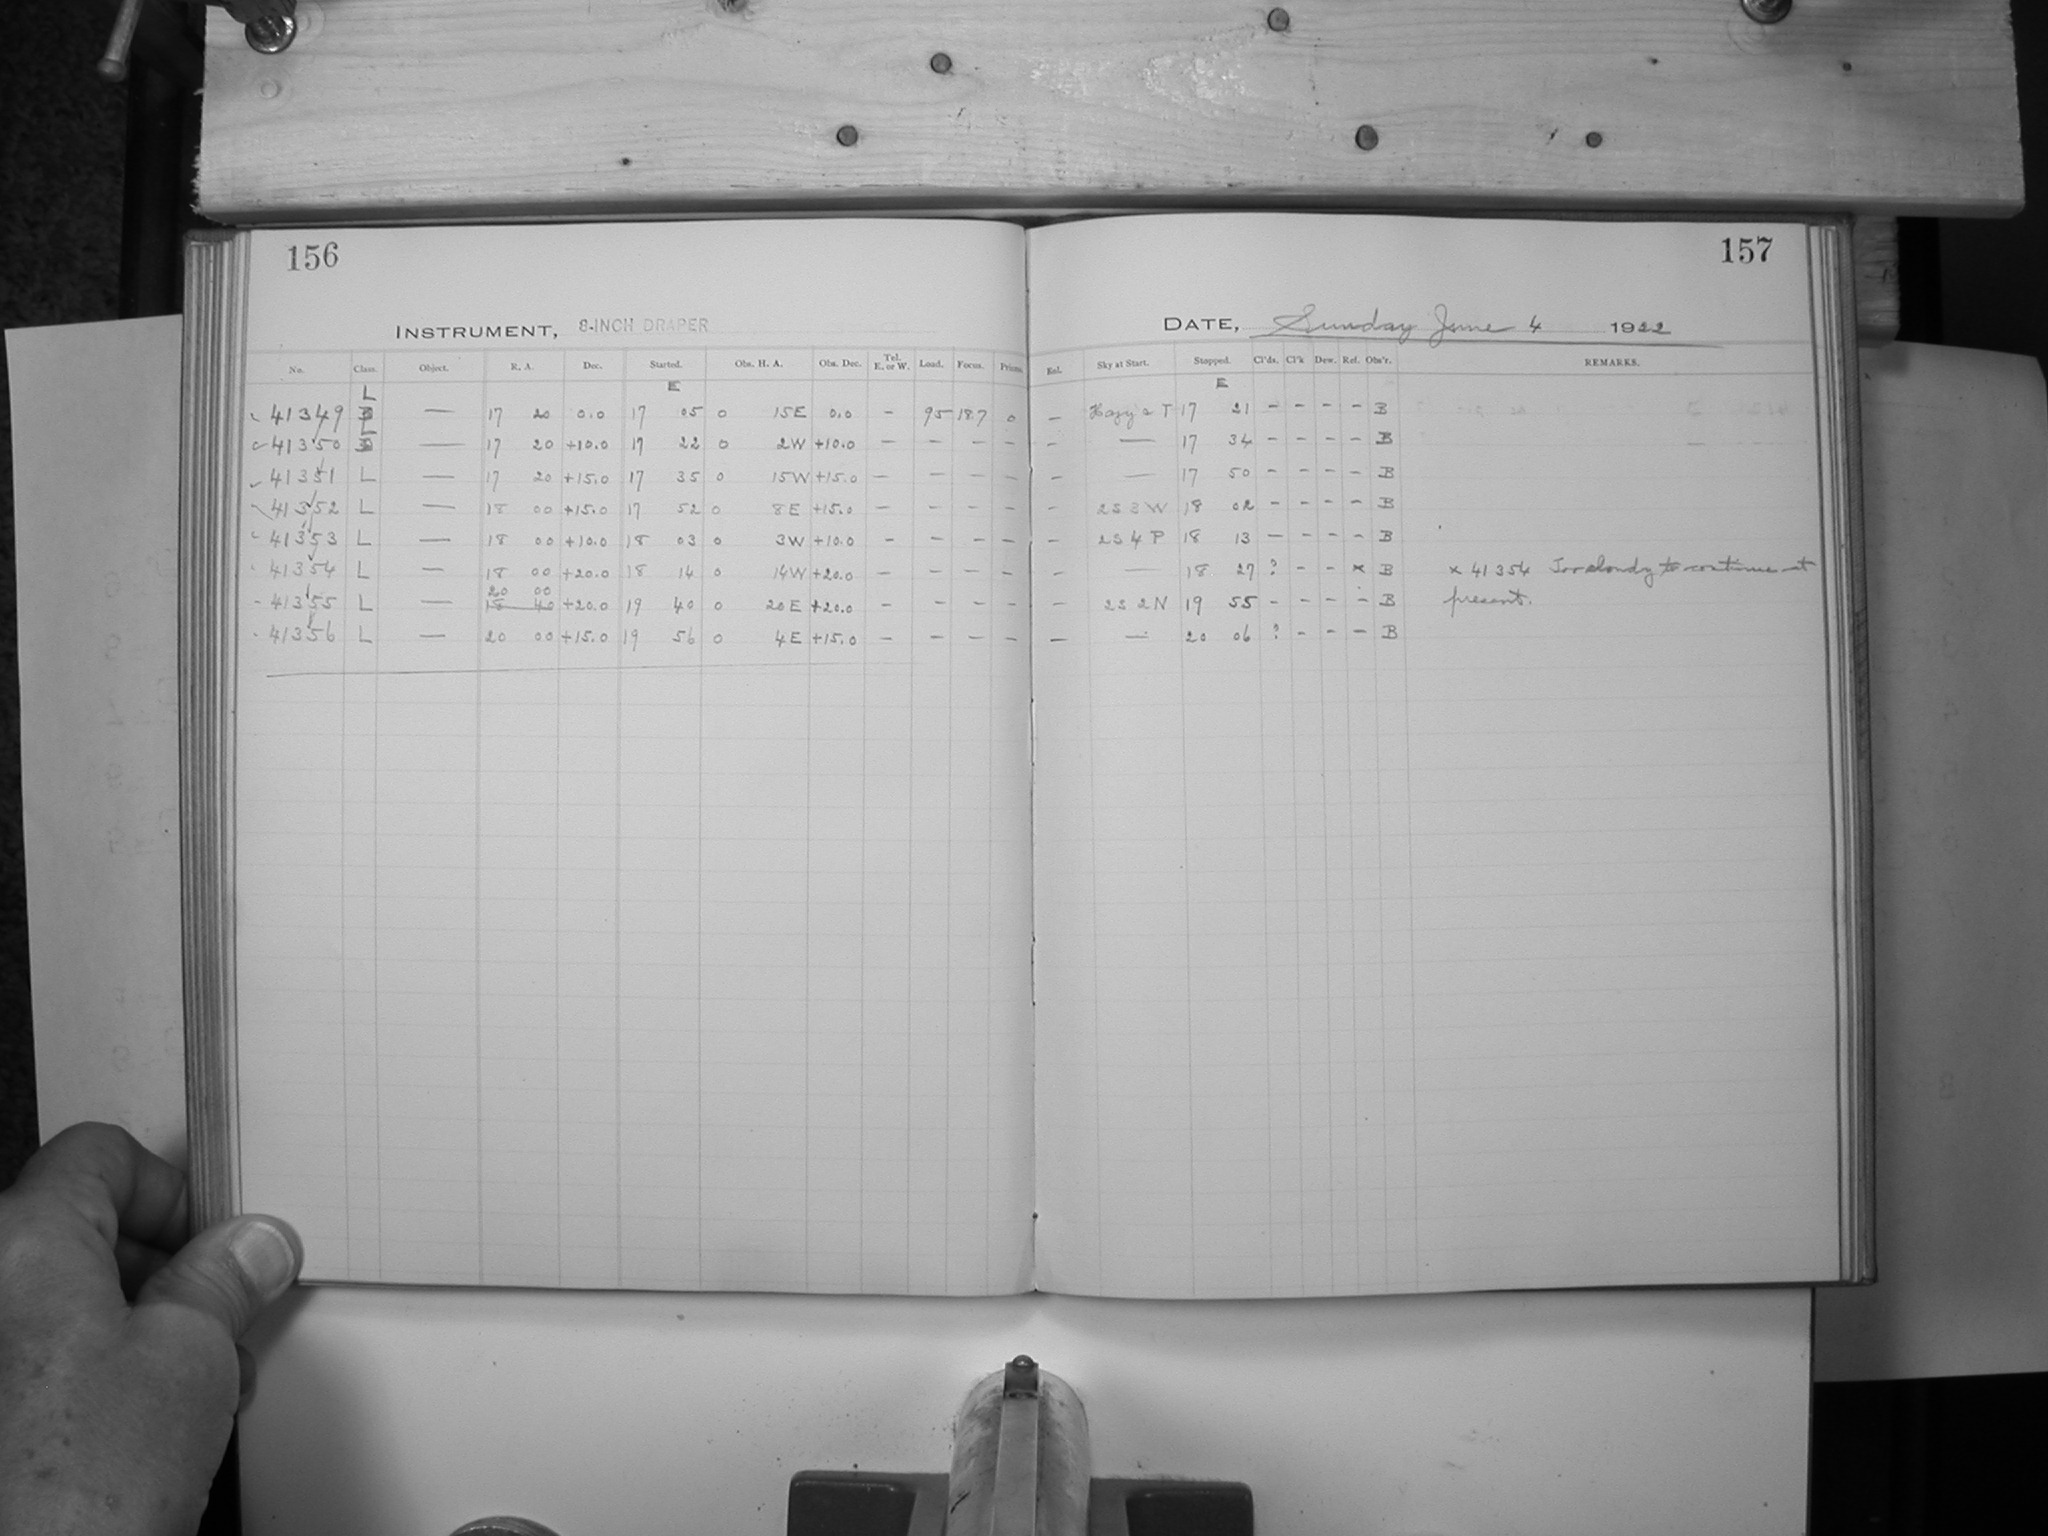 156
INSTRUMENT, 8-INCH DRAPER
No. Class. Object. R. A. Dec. Started. Obs. H. A. Obs. Dec. Tel. E. or W. Load. Focus. Prisms.
L E
41349 B — 17 20 0.0 17 05 0 15E 0.0 - 95 18.7 0
L
41350 B — 17 20 +10.0 17 22 0 2W +10.0 - - - -
41351 L — 17 20 +15.0 17 35 0 15W +15.0 - - - -
41352 L — 18 00 +15.0 17 52 0 8E +15.0 - - - -
41353 L — 18 00 +10.0 18 03 0 3W +10.0 - - - -
41354 L — 18 00 +20.0 18 14 0 14W +20.0 - - - -
20 00
41355 L — 18 40 +20.0 19 40 0 20E +20.0 - - - -
41356 L — 20 00 +15.0 19 56 0 4E +15.0 - - - -
157
DATE, Sunday June 4 1922
Rel. Sky at Start. Stopped. Cl'ds. Cl'k Dew. Ref. Obs'r. REMARKS.
E
- Hazy 2 T 17 21 - - - - B
- — 17 34 - - - - B
- — 17 50 - - - - B
- 2S 3 W 18 02 - - - - B
- 2S 4 P 18 13 - - - - B
- — 18 27 ? - - x B x 41354 Too cloudy to continue at
- 2S 2 N 19 55 - - - - B present.
- — 20 06 ? - - - B